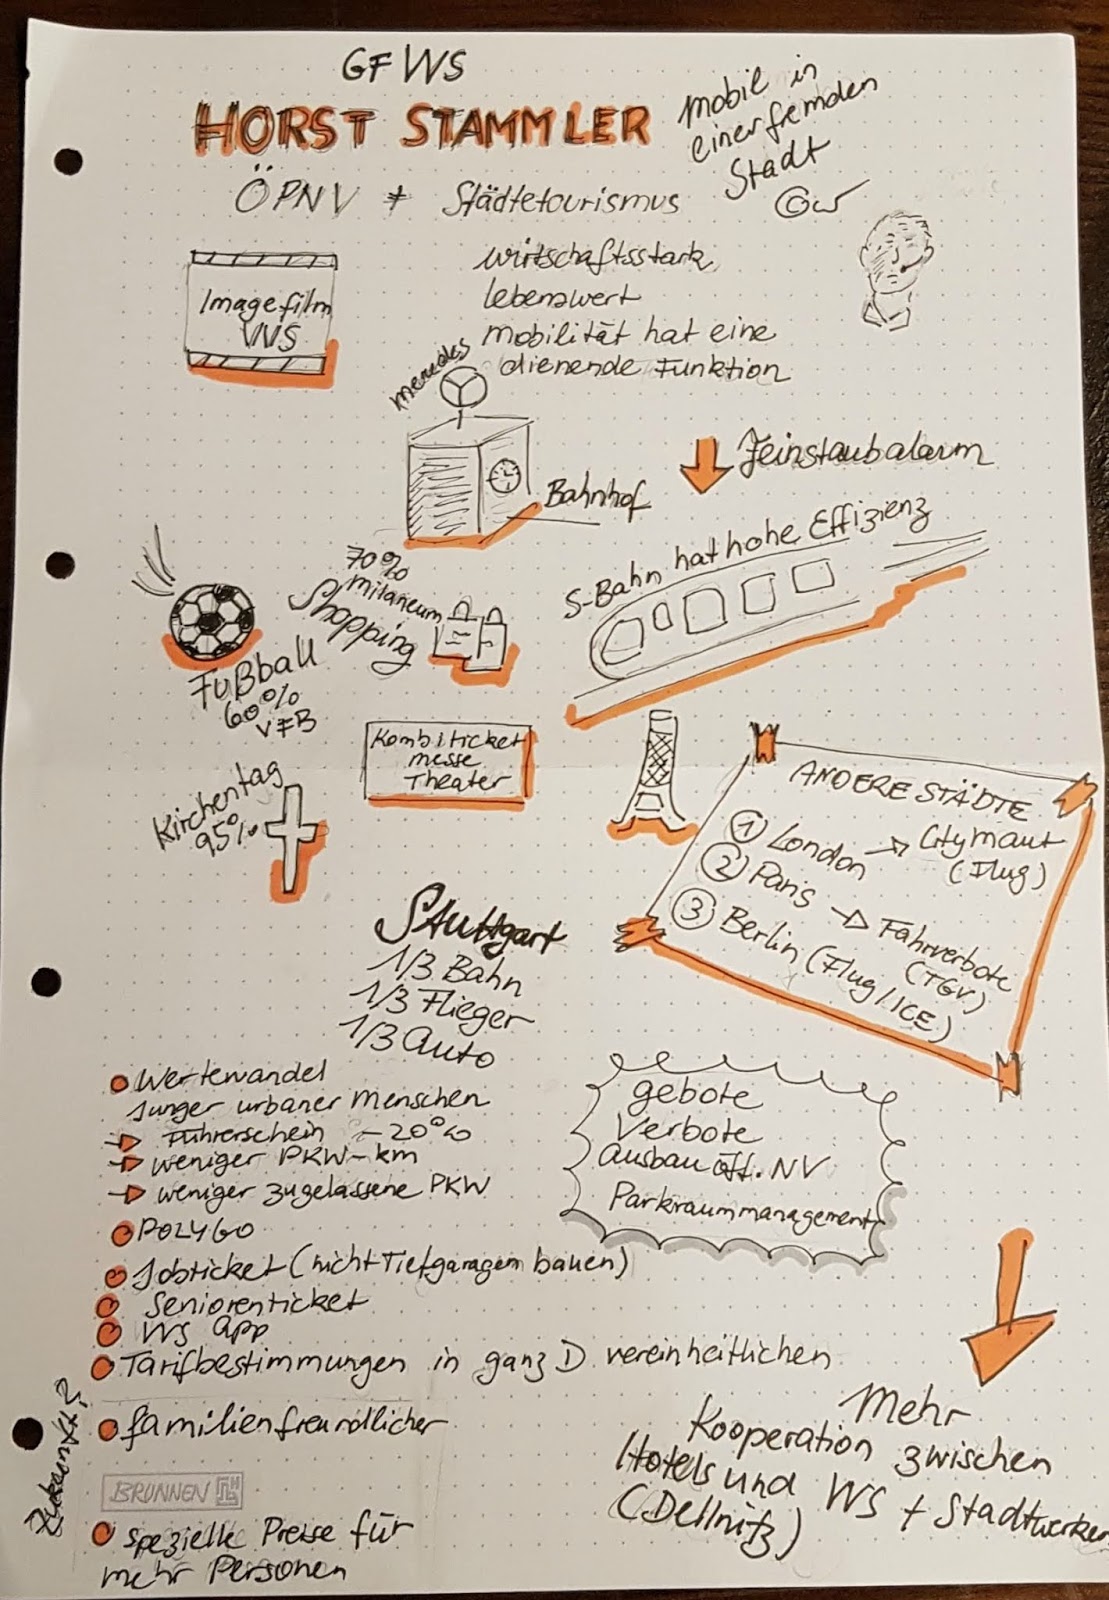 GF VVS
HORST STAMMLER
mobil in
einer fremden
Stadt
ÖPNV + Städtetourismus
Imagefilm
VVS
wirtschaftsstark
lebenswert
mobilität hat eine
dienende Funktion
mercedes
Bahnhof
Feinstaubalarm
S-Bahn hat hohe Effizienz
70%
milaneum
Shopping
Fußball
60%
VFB
Kombiticket
messe
Theater
Kirchentag
95%
ANDERE STÄDTE
1 London → Citymaut
(Flug)
2 Paris → Fahrverbote
(TGV)
3 Berlin (Flug/ICE)
Stuttgart
1/3 Bahn
1/3 Flieger
1/3 Auto
Wertewandel
Junger urbaner Menschen
→ Führerschein - 20%
→ weniger PKW-km
→ weniger zugelassene PKW
POLYGO
Jobticket (nicht Tiefgaragen bauen)
Seniorenticket
VVS App
Tarifbestimmungen in ganz D vereinheitlichen
gebote
Verbote
Ausbau öff. NV
Parkraummanagement
Zukunft?
familienfreundlicher
BRUNNEN
spezielle Preise für
mehr Personen
Mehr
Kooperation zwischen
Hotels und VVS + Stadtwerken
(Dellnitz)